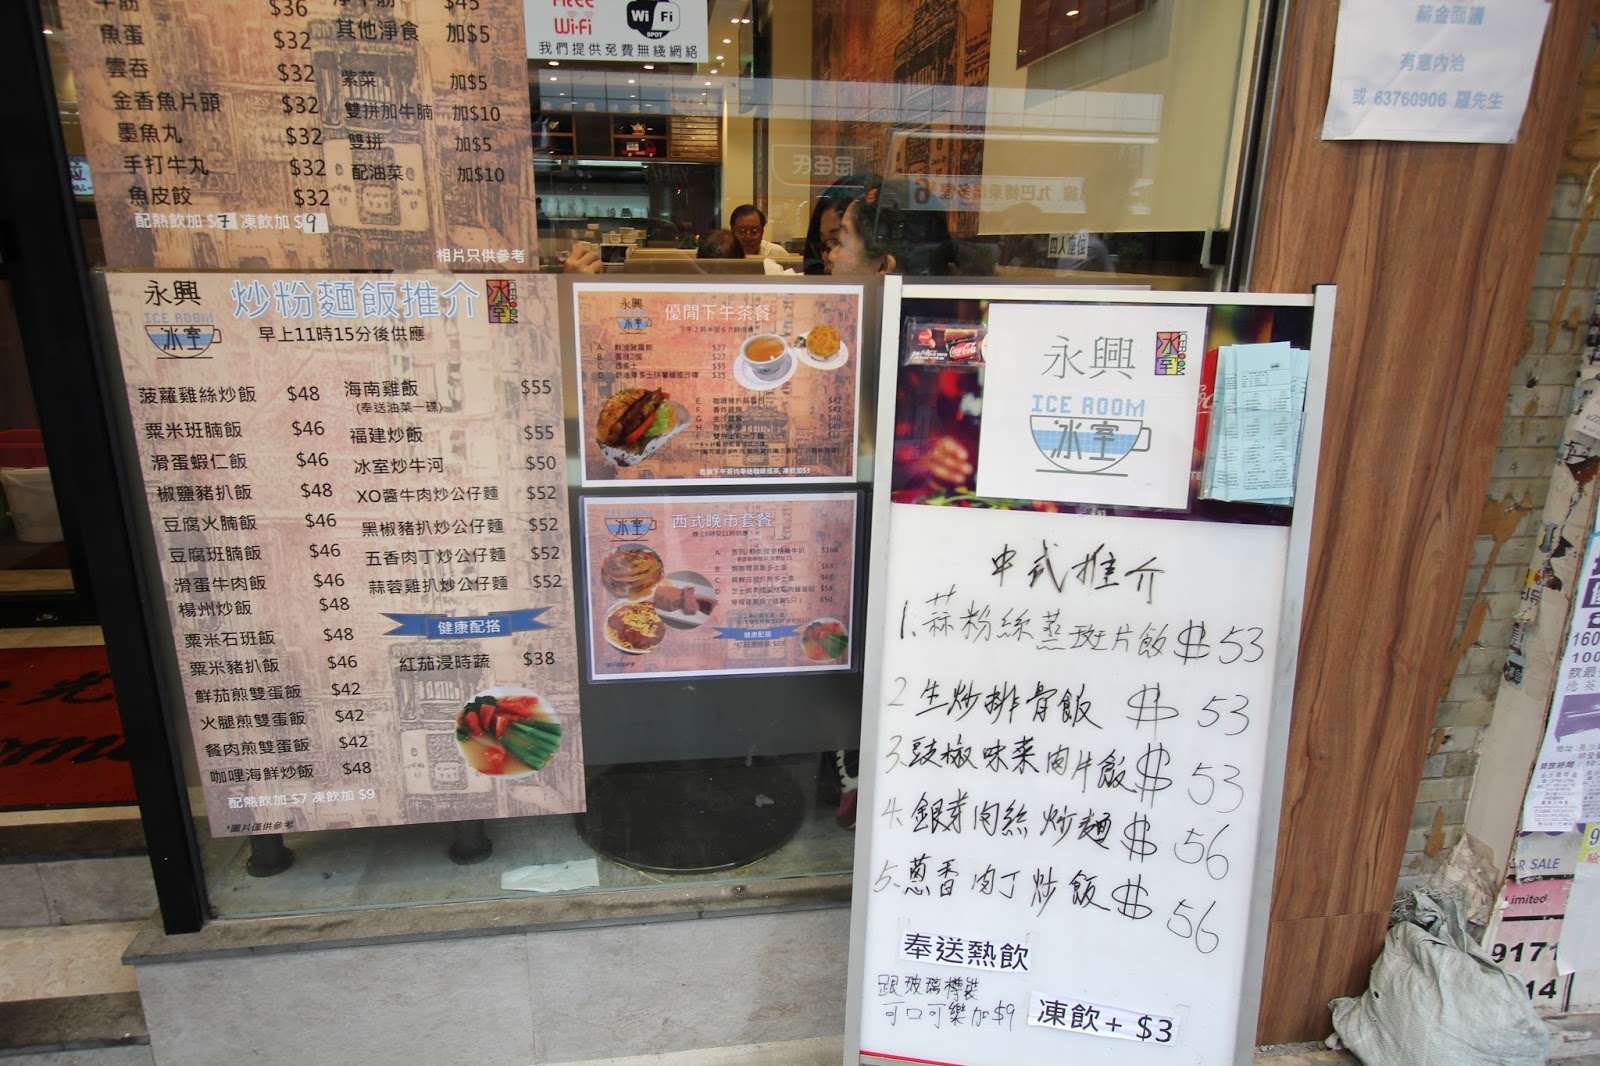 牛筋 $36
魚蛋 $32
雲吞 $32
金香魚片頭 $32
墨魚丸 $32
手打牛丸 $32
魚皮餃 $32
配熱飲加 $7 凍飲加 $9
$45
其他淨食 加$5
紫菜 加$5
雙拼加牛腩 加$10
雙拼 加$5
配油菜 加$10
相片只供參考
Free
Wi-Fi
Wi Fi
SPOT
我們提供免費無綫網絡
四人座位
薪金面議
有意內洽
或 63760906 羅先生
永興
ICE ROOM
冰室
炒粉麵飯推介
冰室
早上11時15分後供應
菠蘿雞絲炒飯 $48
粟米班腩飯 $46
滑蛋蝦仁飯 $46
椒鹽豬扒飯 $48
豆腐火腩飯 $46
豆腐班腩飯 $46
滑蛋牛肉飯 $46
楊州炒飯 $48
粟米石班飯 $48
粟米豬扒飯 $46
鮮茄煎雙蛋飯 $42
火腿煎雙蛋飯 $42
餐肉煎雙蛋飯 $42
咖哩海鮮炒飯 $48
配熱飲加 $7 凍飲加 $9
*圖片僅供參考
海南雞飯 $55
(奉送油菜一碟)
福建炒飯 $55
冰室炒牛河 $50
XO醬牛肉炒公仔麵 $52
黑椒豬扒炒公仔麵 $52
五香肉丁炒公仔麵 $52
蒜蓉雞扒炒公仔麵 $52
健康配搭
紅茄浸時蔬 $38
永興
冰室
優閒下午茶餐
A. $27
B. $27
C. 西多士 $35
D. $35
冰室
西式晚市套餐
晚上6時至11時供應
健康配搭
Coca-Cola
永興
冰室
ICE ROOM
冰室
中式推介
1. 蒜粉絲蒸班片飯 $53
2 生炒排骨飯 $53
3. 豉椒味菜肉片飯 $53
4. 銀芽肉絲炒麵 $56
5. 蔥香肉丁炒飯 $56
奉送熱飲
跟玻璃樽裝
可口可樂加$9
凍飲 + $3
SALE
Limited
9171